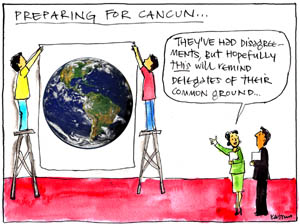 PREPARING FOR CANCUN...
THEY'VE HAD DISAGREE-
MENTS, BUT HOPEFULLY
THIS WILL REMIND
DELEGATES OF THEIR
COMMON GROUND...